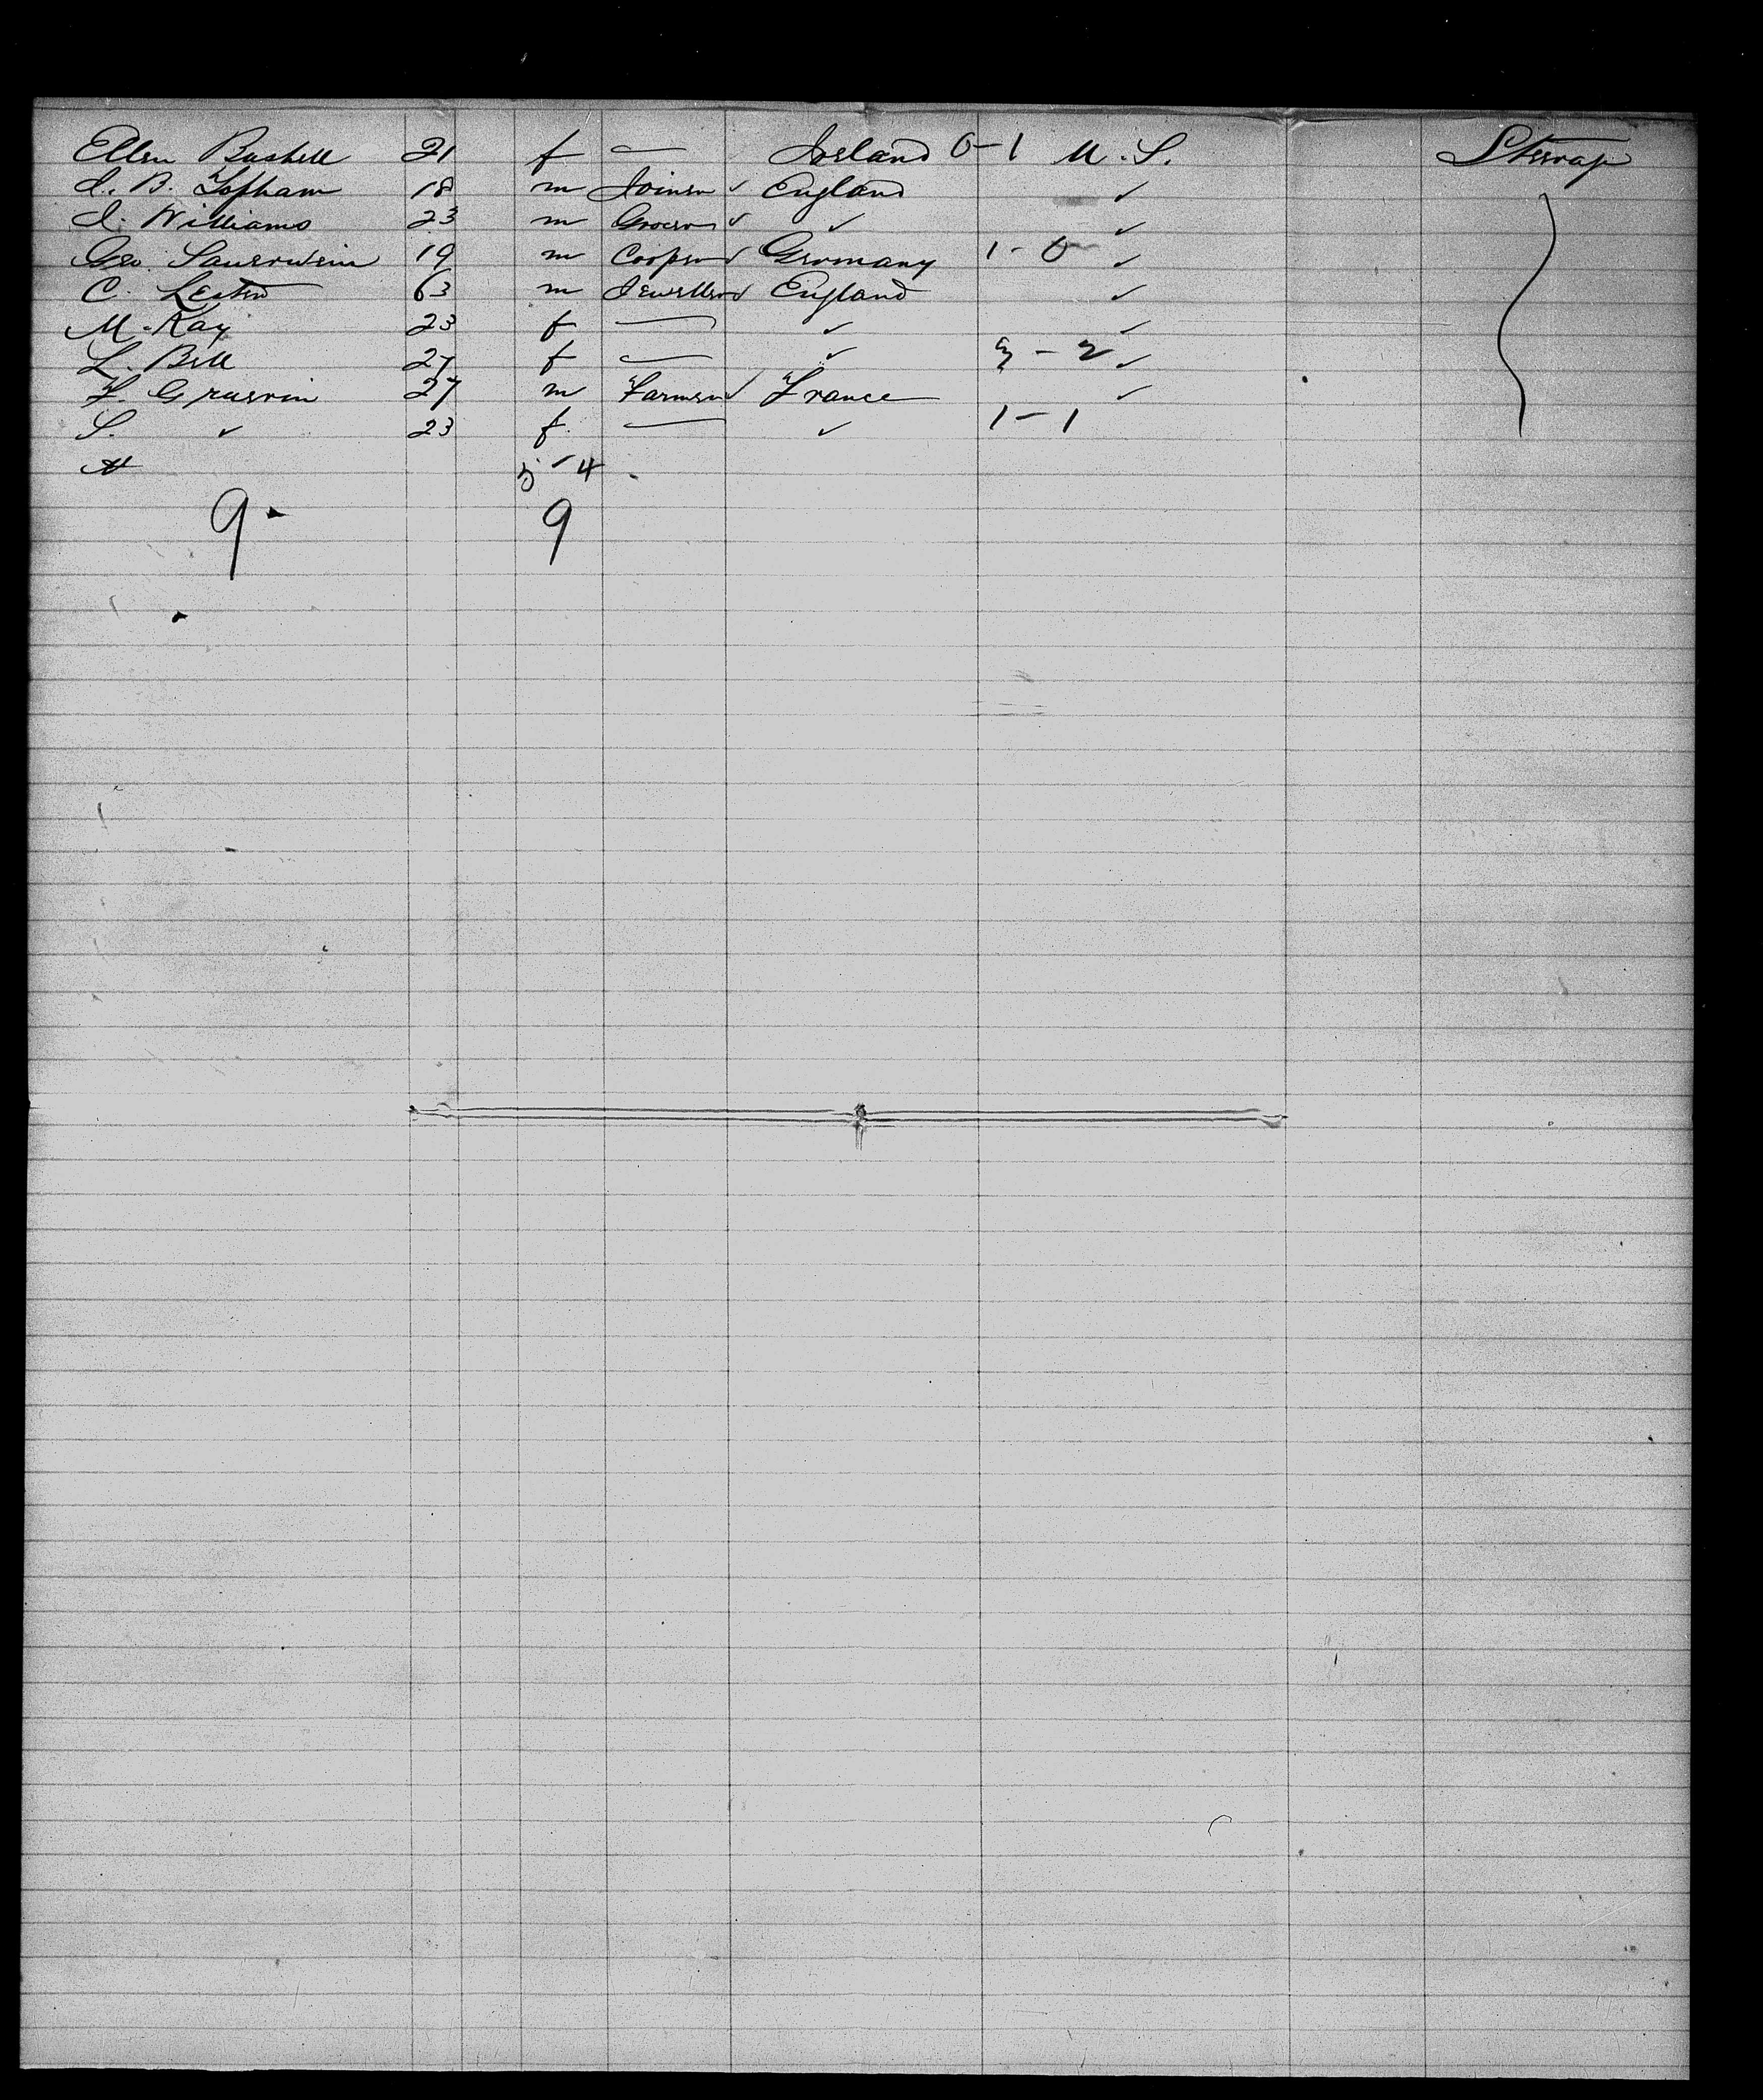 Ellen Bushell 21 f — Ireland 0-1 U.S. Steerage
J. B. Topham 18 m Joiner ✓ England ✓
J. Williams 23 m Grocer ✓ ✓ ✓
Geo. Sauerwein 19 m Cooper ✓ Germany 1-0 ✓
C. Lester 63 m Jeweller ✓ England ✓
M. Kay 23 f — ✓ ✓
L. Bell 27 f — ✓ 3-2 ✓
F. 27 m Farmer ✓ France ✓
S. ✓ 23 f. — ✓ 1-1
5-4
9 9